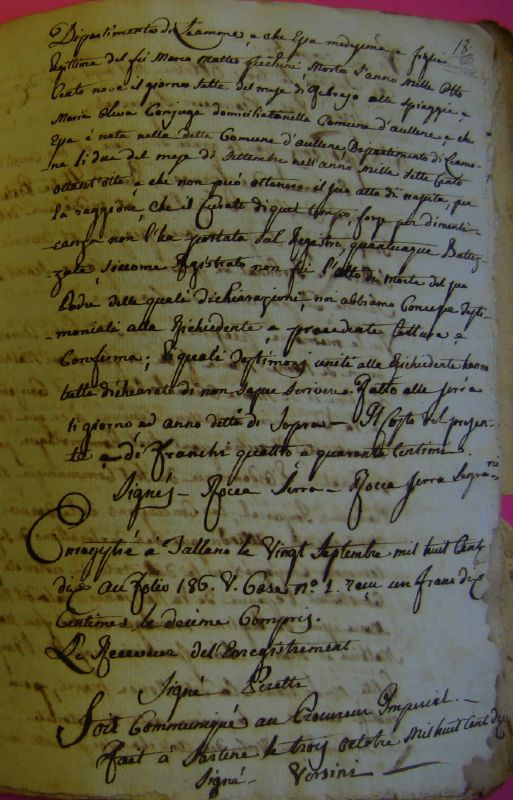 Dipartimento di Liamone, e che Essa medesima e figlia
legittima del fu Marco Matteo Morto l'anno Mille otto
Cento nove il giorno sette del mese di Febrajo alle spiaggie e
Maria Oliva Conjuge domiciliata nella Comune d'aullene, e che
Essa è nata nella detta Comune d'aullene Dipartimento di Liamo-
ne li due del mese di Settembre nell'anno Mille sette Cento
ottant'otto, e che non può ottenere il suo atto di nascita, per
la raggione, che il Curato di quel tempo, forse per dimenti-
canza non l'ha portata sul Registro, quantunque Battez-
zata, siccome Registrato non fù l'atto di morte del suo
Padre delle quali dichiarazioni, noi abbiamo Concesse Testi-
-moniali alla Richiedente e precedente lettura e
Conferma; li quali Testimonj uniti alla Richiedente hanno
tutti dichiarato di non sapere scrivere. Fatto alla Serra
li giorno ed anno detti di Sopra — Il Costo del presen-
te è di Franchi quattro e quaranta Centimi.
Signés — Rocca Serra — Rocca Serra Segrario
Enregistré a Tallano le Vingt Septembre mil huit Cent
dix au folio 186. V. Case n.º 1. reçu un franc dix
Centimes, le decime Compris.
Le Receveur de l'Enregistrement
Signé Peretti
Soit Communiqué au Procureur Imperial. —
Fait à Sartene le troy octobre Mil huit Cent dix
Signé —